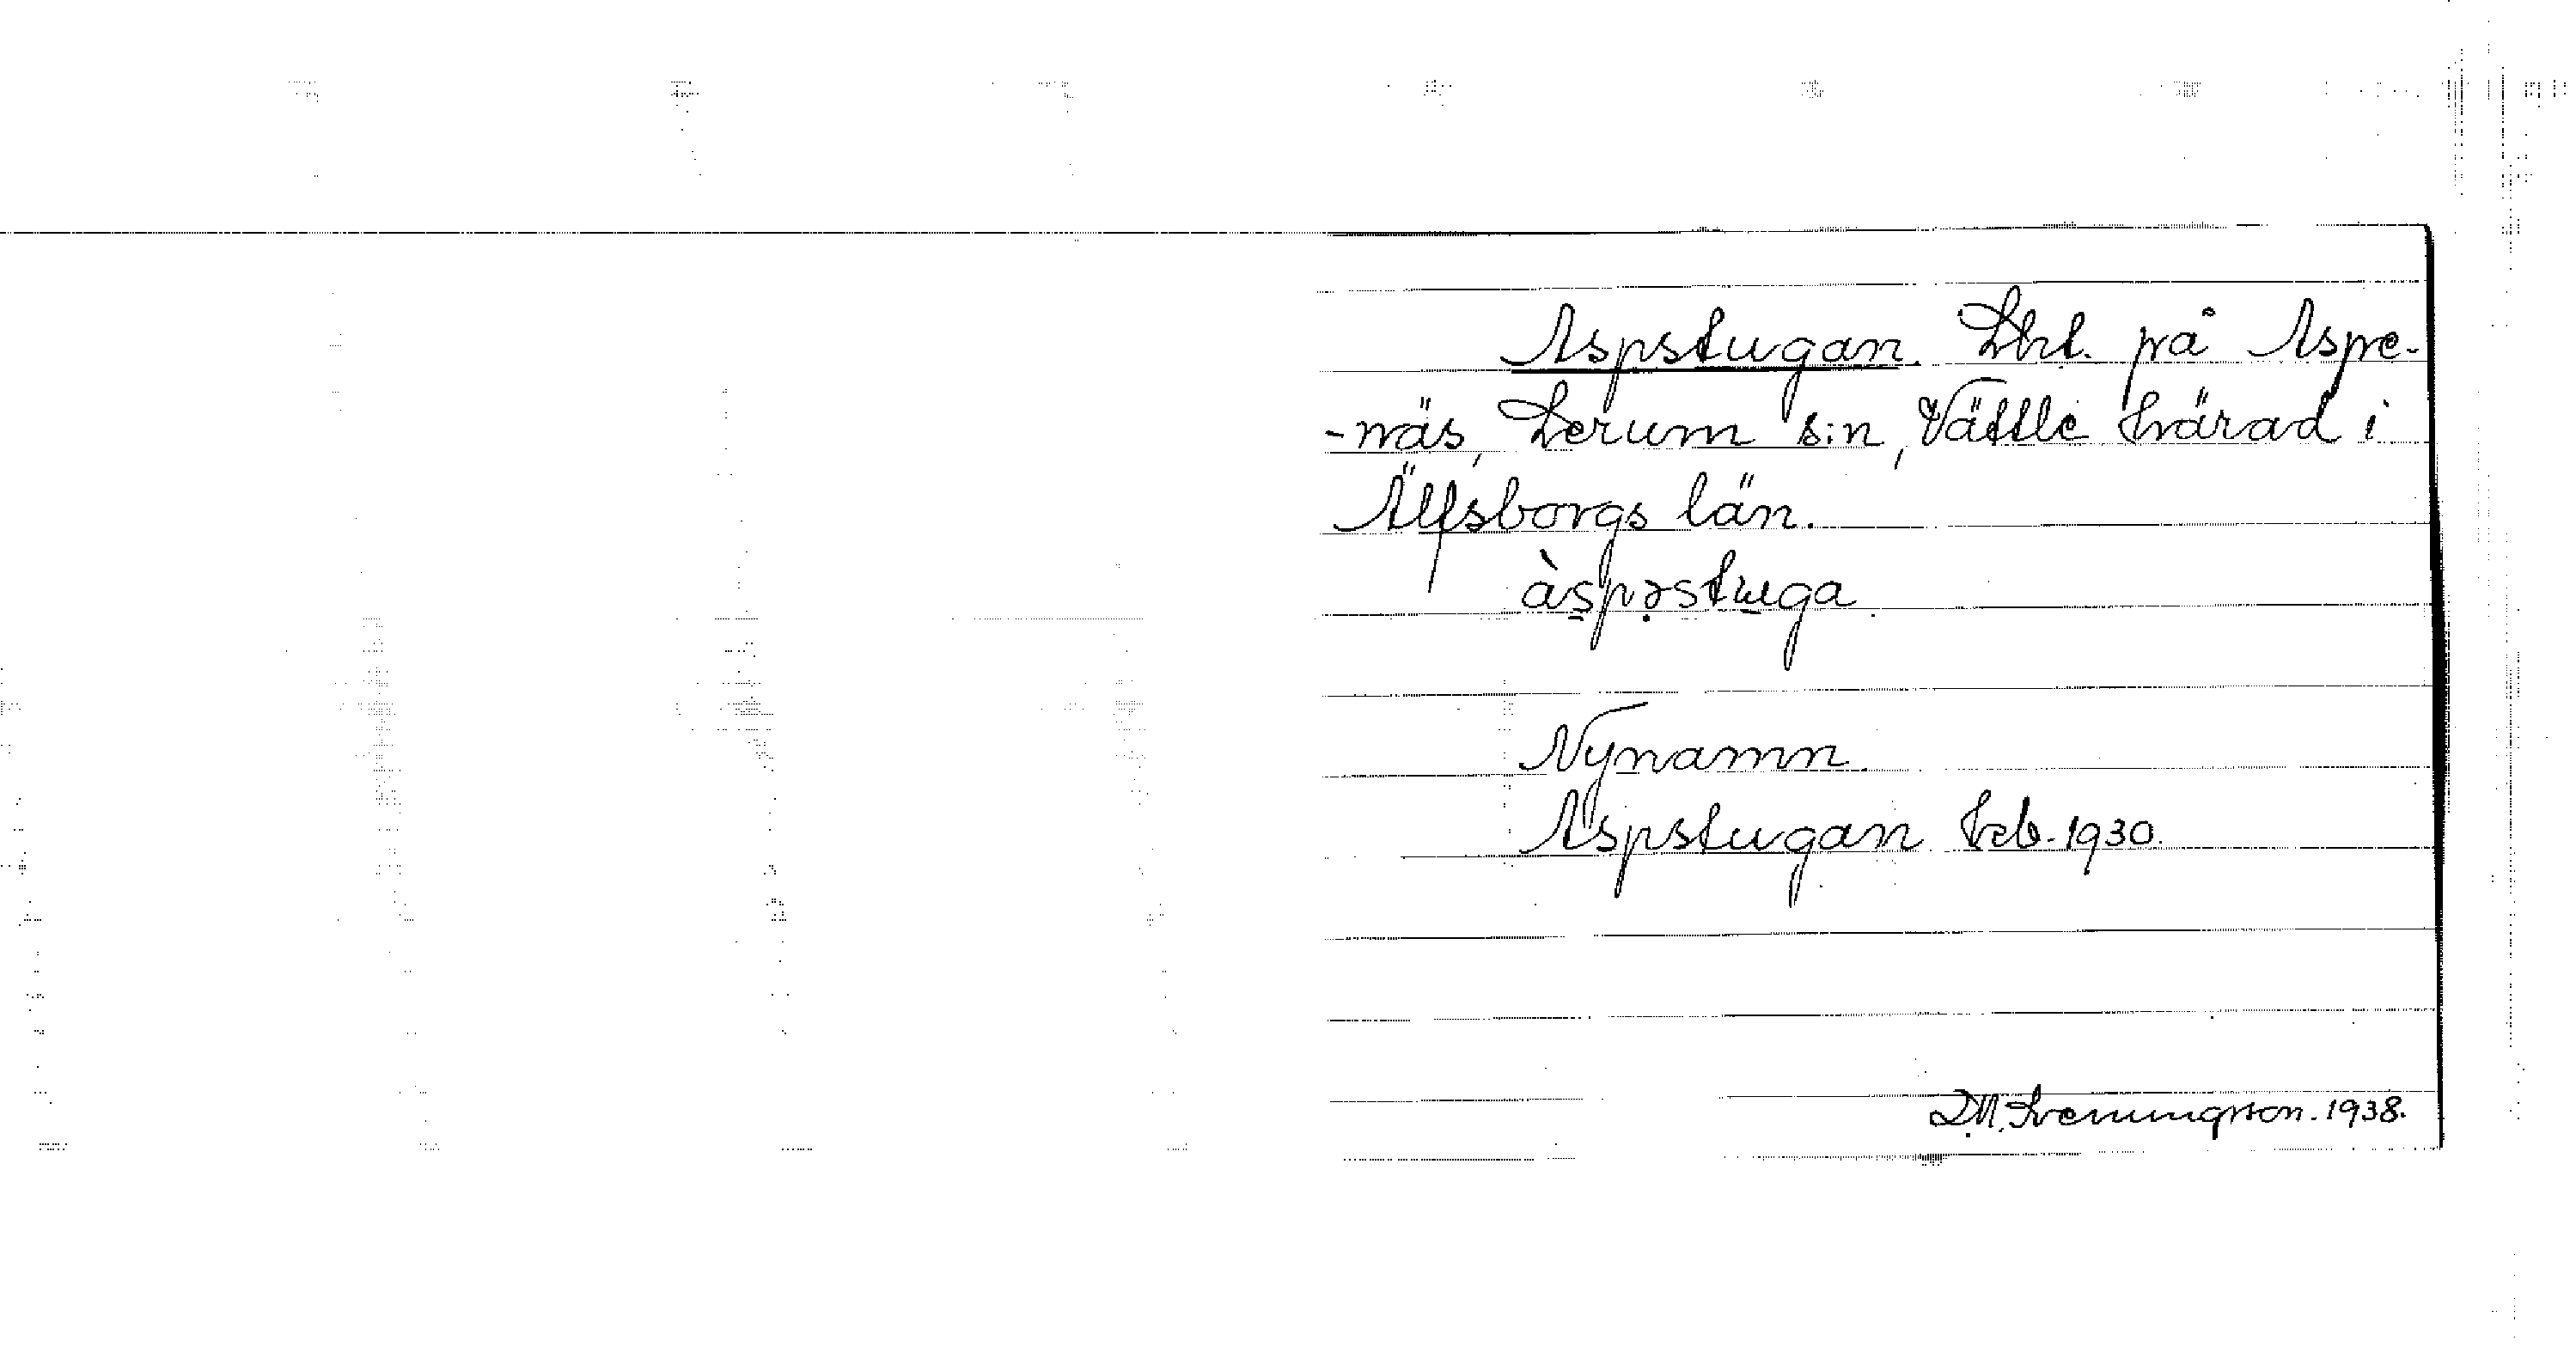 Aspstugan. Lht. på Aspe-
-näs, Lerum s:n, Vättle härad i
Älfsborgs län.
àspəstuga.
Nynamn.
Aspstugan Jrb. 1930.
D.N. Sveningson. 1938.